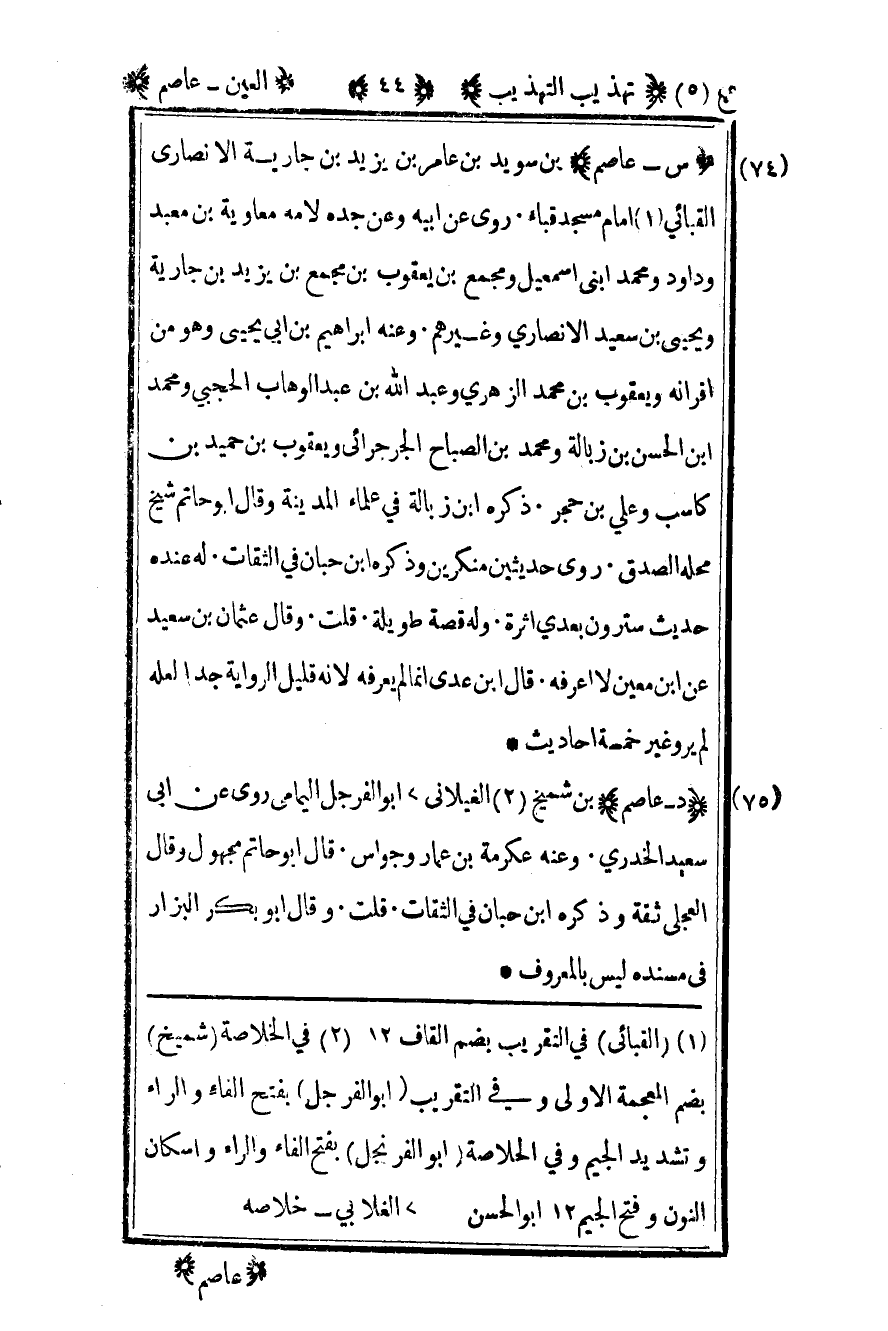 تع (٥) ﴿ تهذيب التهذيب ﴾ ﴿ ٤٤ ﴾ ﴿ العين ـ عاصم ﴾
(٧٤) ﴿ س ـ عاصم ﴾ بن سويد بن عامر بن يزيد بن جارية الانصارى
القبائي (١) امام مسجد قباء · روى عن ابيه وعن جده لامه معاوية بن معبد
وداود ومحمد ابنى اسمعيل ومجمع بن يعقوب بن مجمع بن يزيد بن جارية
ويحيى بن سعيد الانصاري وغيرهم · وعنه ابراهيم بن ابي يحيى وهو من
اقرانه ويعقوب بن محمد الزهري وعبد الله بن عبد الوهاب الحجبي ومحمد
ابن الحسن بن زبالة ومحمد بن الصباح الجرجرائى ويعقوب بن حميد بن
كاسب وعلي بن حجر · ذكره ابن زبالة في علماء المدينة وقال ابو حاتم شيخ
محله الصدق · روى حديثين منكرين وذكره ابن حبان في الثقات · له عنده
حديث سترون بعدي اثرة · وله قصة طويلة · قلت · وقال عثمان بن سعيد
عن ابن معين لا اعرفه · قال ابن عدى انما لم يعرفه لانه قليل الرواية جدا لعله
لم يرو غير خمسة احاديث *
(٧٥) ﴿ د ـ عاصم ﴾ بن شميخ (٢) الغيلانى > ابو الفرجل اليمامى روى عن ابى
سعيد الخدري · وعنه عكرمة بن عمار وجواس · قال ابو حاتم مجهول وقال
العجلى ثقة وذكره ابن حبان في الثقات · قلت · وقال ابو بكر البزار
فى مسنده ليس بالمعروف *
(١) (القبائى) في التقريب بضم القاف ١٢ (٢) في الخلاصة (شميخ)
بضم المعجمة الاولى وفي التقريب (ابو الفرجل) بفتح الفاء والراء
وتشديد الجيم وفي الخلاصة (ابو الفرنجل) بفتح الفاء والراء واسكان
النون وفتح الجيم ١٢ ابو الحسن > الغلابي ـ خلاصه
﴿ عاصم ﴾